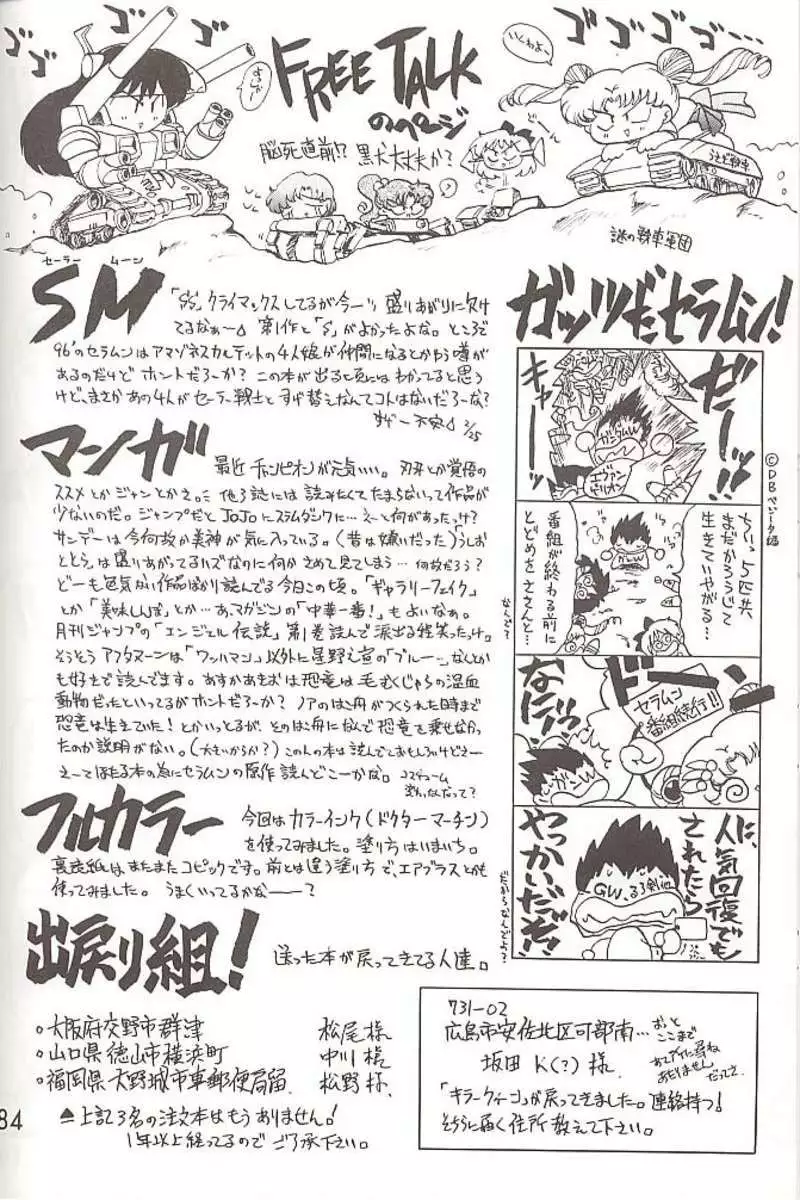 ゴゴゴ
ゴゴゴゴ…
いくわよー
FREE TALK
のページ
脳死直前!? 黒犬大丈夫か?
うさぎ戦車
謎の戦車軍団
セーラームーン
SM
「SS」クライマックスしてるが今一ツ盛りあがりに欠け
てるなぁ〜 第1作と「S」がよかったよな。ところで
96'のセラムンはアマゾネスカルテットの4人娘が仲間になるとかゆう噂が
あるのだけどホントだろーか? この本が出る頃にはわかってると思う
けど、まさかあの4人がセーラー戦士とすげ替えなんてコトはないだろーな?
すげー不安 2/25
マンガ
最近チャンピオンが元気いい。刃牙とか覚悟の
ススメとかジャンとかさぇ。 他3誌には読みたくてたまらないって作品が
少ないのだ。ジャンプだとJoJoにスラムダンクに…えーと何があったっけ?
サンデーは今何故か美神が気に入っている。(昔は嫌いだった)「うしお
ととら」は盛りあがってるハズなのに何かさめて見てしまう… 何故だろう?
どーも色気ない作品ばかり読んでる今日この頃。「ギャラリーフェイク」
とか「美味しんぼ」とか…あ、マガジンの「中華一番!」もよいなぁ。
月刊ジャンプの「エンジェル伝説」第1巻読んで涙出る程笑ったっけ。
そうそうアフタヌーンは「ワッハマン」以外に星野之宣の「ブルー〜」なんとか
も好きで読んでます。あすかあきおは恐竜は毛むくじゃらの温血
動物だったといってるがホントだろーか? ノアのはこ舟がつくられた時まで
恐竜は生きていた!とかいっとるが、そのはこ舟になんで恐竜を乗せなかっ
たのか説明がない。(大きいからか?)この人の本は読んでておもしろいけどさー
えーってほたる本の為にセラムンの原作読んどこーかな。
フルカラー
今回はカラーインク(ドクターマーチン)
を使ってみました。塗り方はいまいち。
裏表紙はまたまたコピックです。前とは違う塗り方で、エアブラスとかも
使ってみました。うまくいってるかな———?
出戻り組!
送った本が戻ってきてる人達。
○大阪府交野市群津 松尾様
○山口県徳山市横浜町 中川様
○福岡県大野城市東郵便局留 松野様
▲上記3名の注文本はもうありません!
1年以上経ってるのでご了承下さい。
84
ガッツだセラムン!
©DBベジータ編
ぜーッ!!
キャーッ
ガンダムW
エヴァンゲリオン
ちいっ 5匹共
まだかろうじて
生きていやがる…
番組が終わる前に
とどめをささんと…
なんで?
ドーン
セラムン
番組続行!!
なにィッ
ガンW
人気回復でも
されたら
やっかいだぞ!
GW、るろ剣他
だからなんでよ?
731-02
広島市安佐北区可部南…
おっと
ここまで
坂田K(?)様
「キラークィーン」が戻ってきました。連絡待つ!
そちらに届く住所教えて下さい。